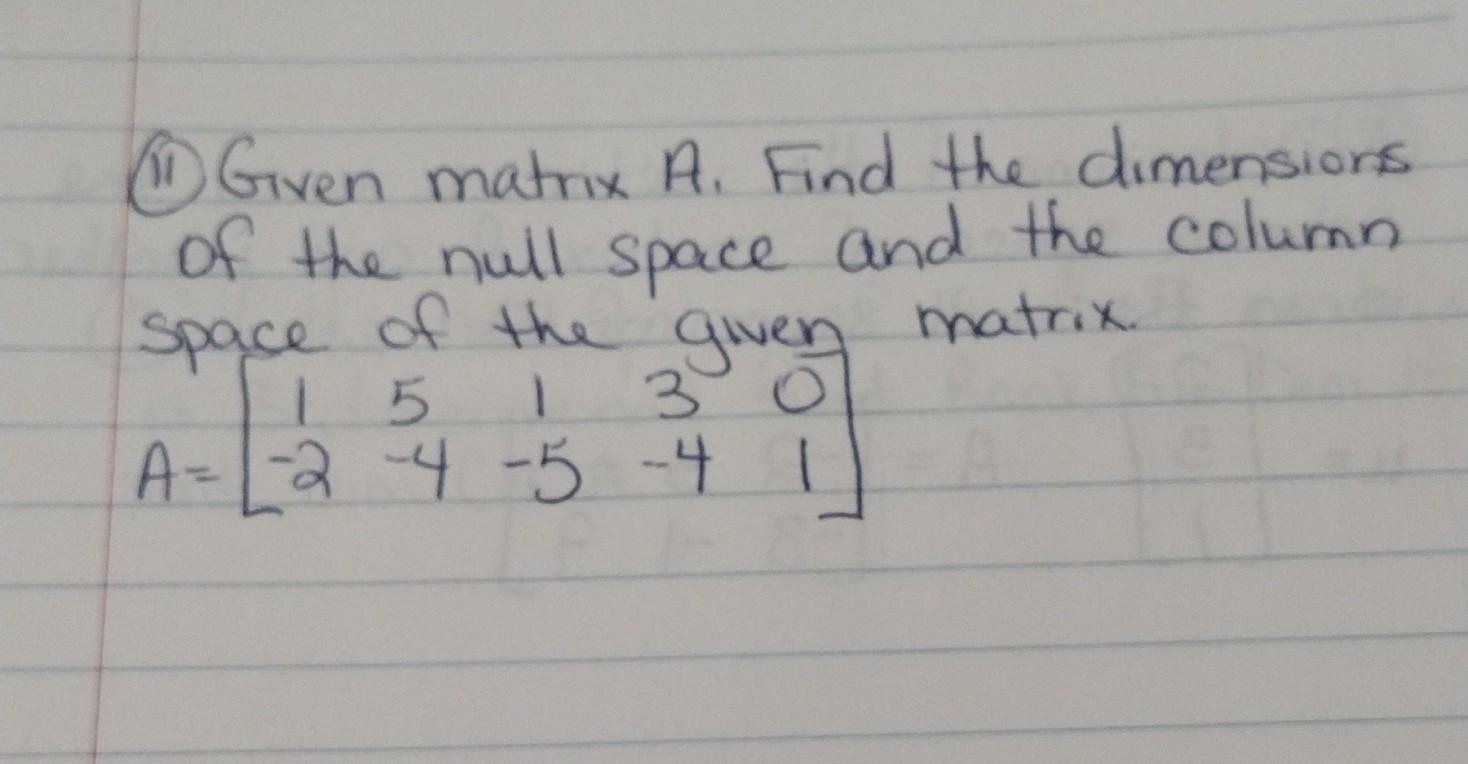 ⑪ Given matrix A. Find the dimensions
of the null space and the column
space of the given matrix.
1 5 1 3 0
A= -2 -4 -5 -4 1